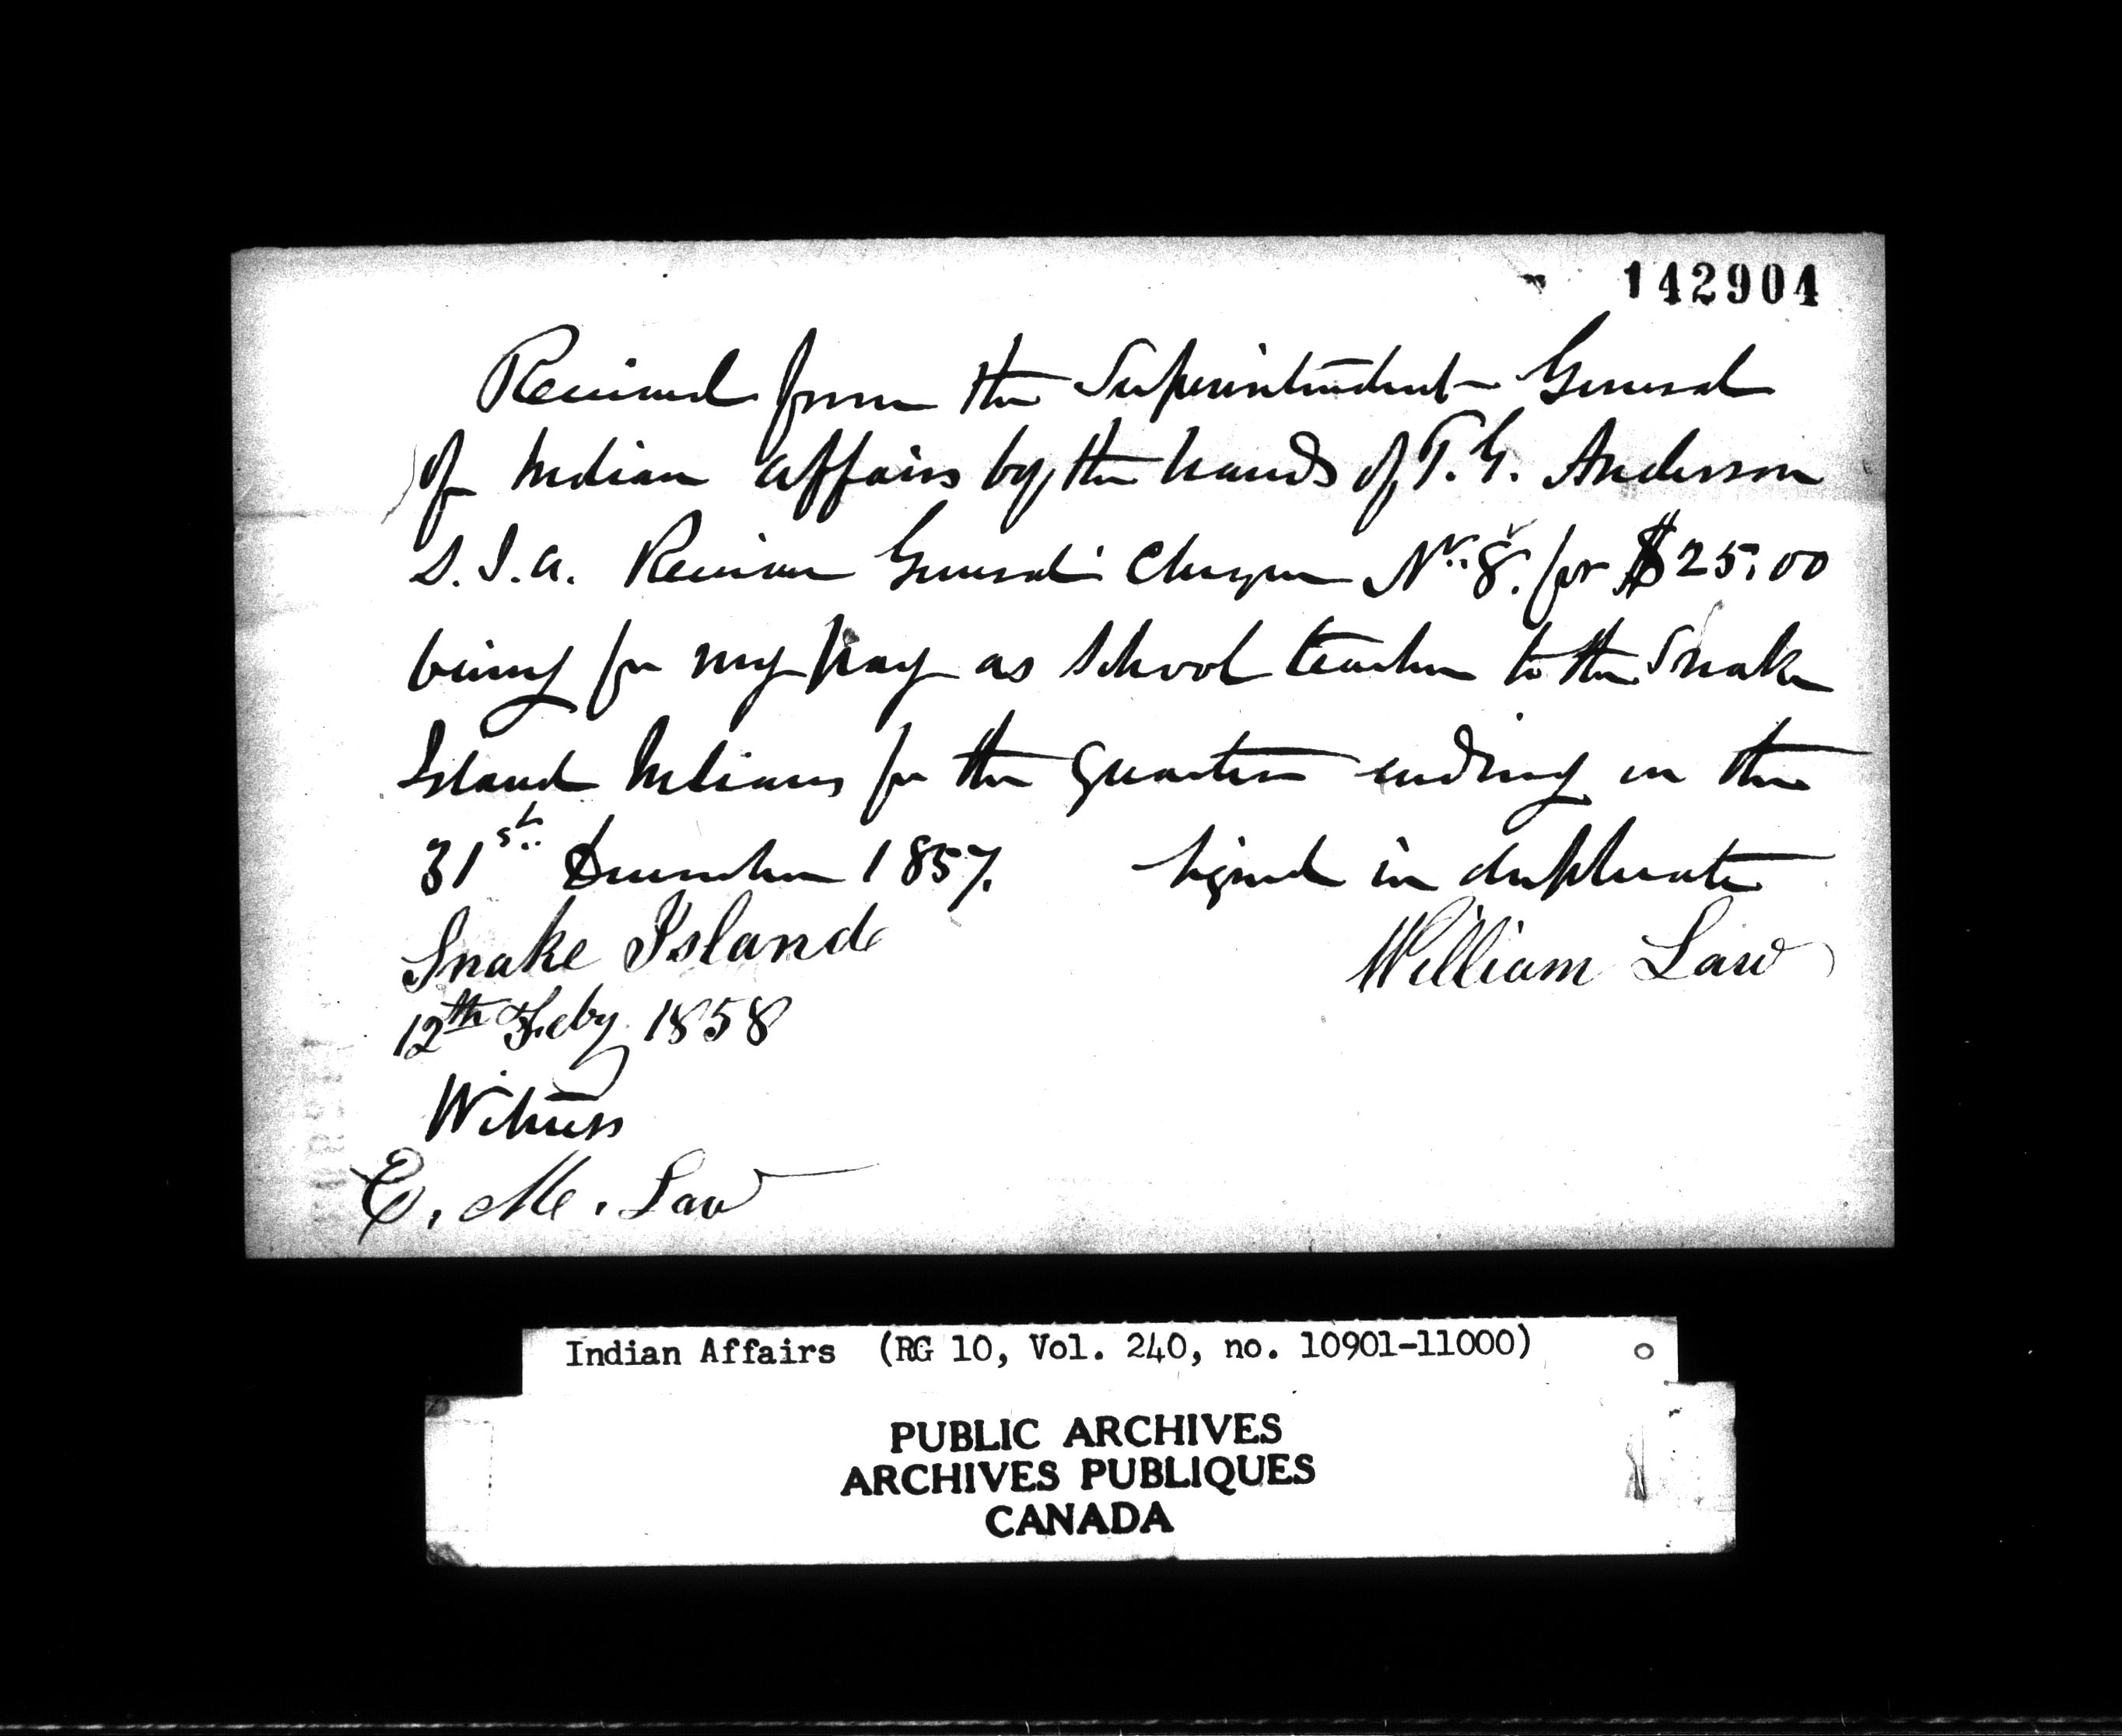 142904
Received from the Superintendent General
of Indian Affairs by the hands of T. G. Anderson
S. I. A. Receiver General's Cheque No. 8. for $25.00
being for my pay as School teacher to the Snake
Island Indians for the quarter ending on the
31st December 1857. Signed in duplicate
Snake Island William Law
12th Feby 1858
Witness
E. M. Law
Indian Affairs (RG 10, Vol. 240, no. 10901-11000)
PUBLIC ARCHIVES
ARCHIVES PUBLIQUES
CANADA